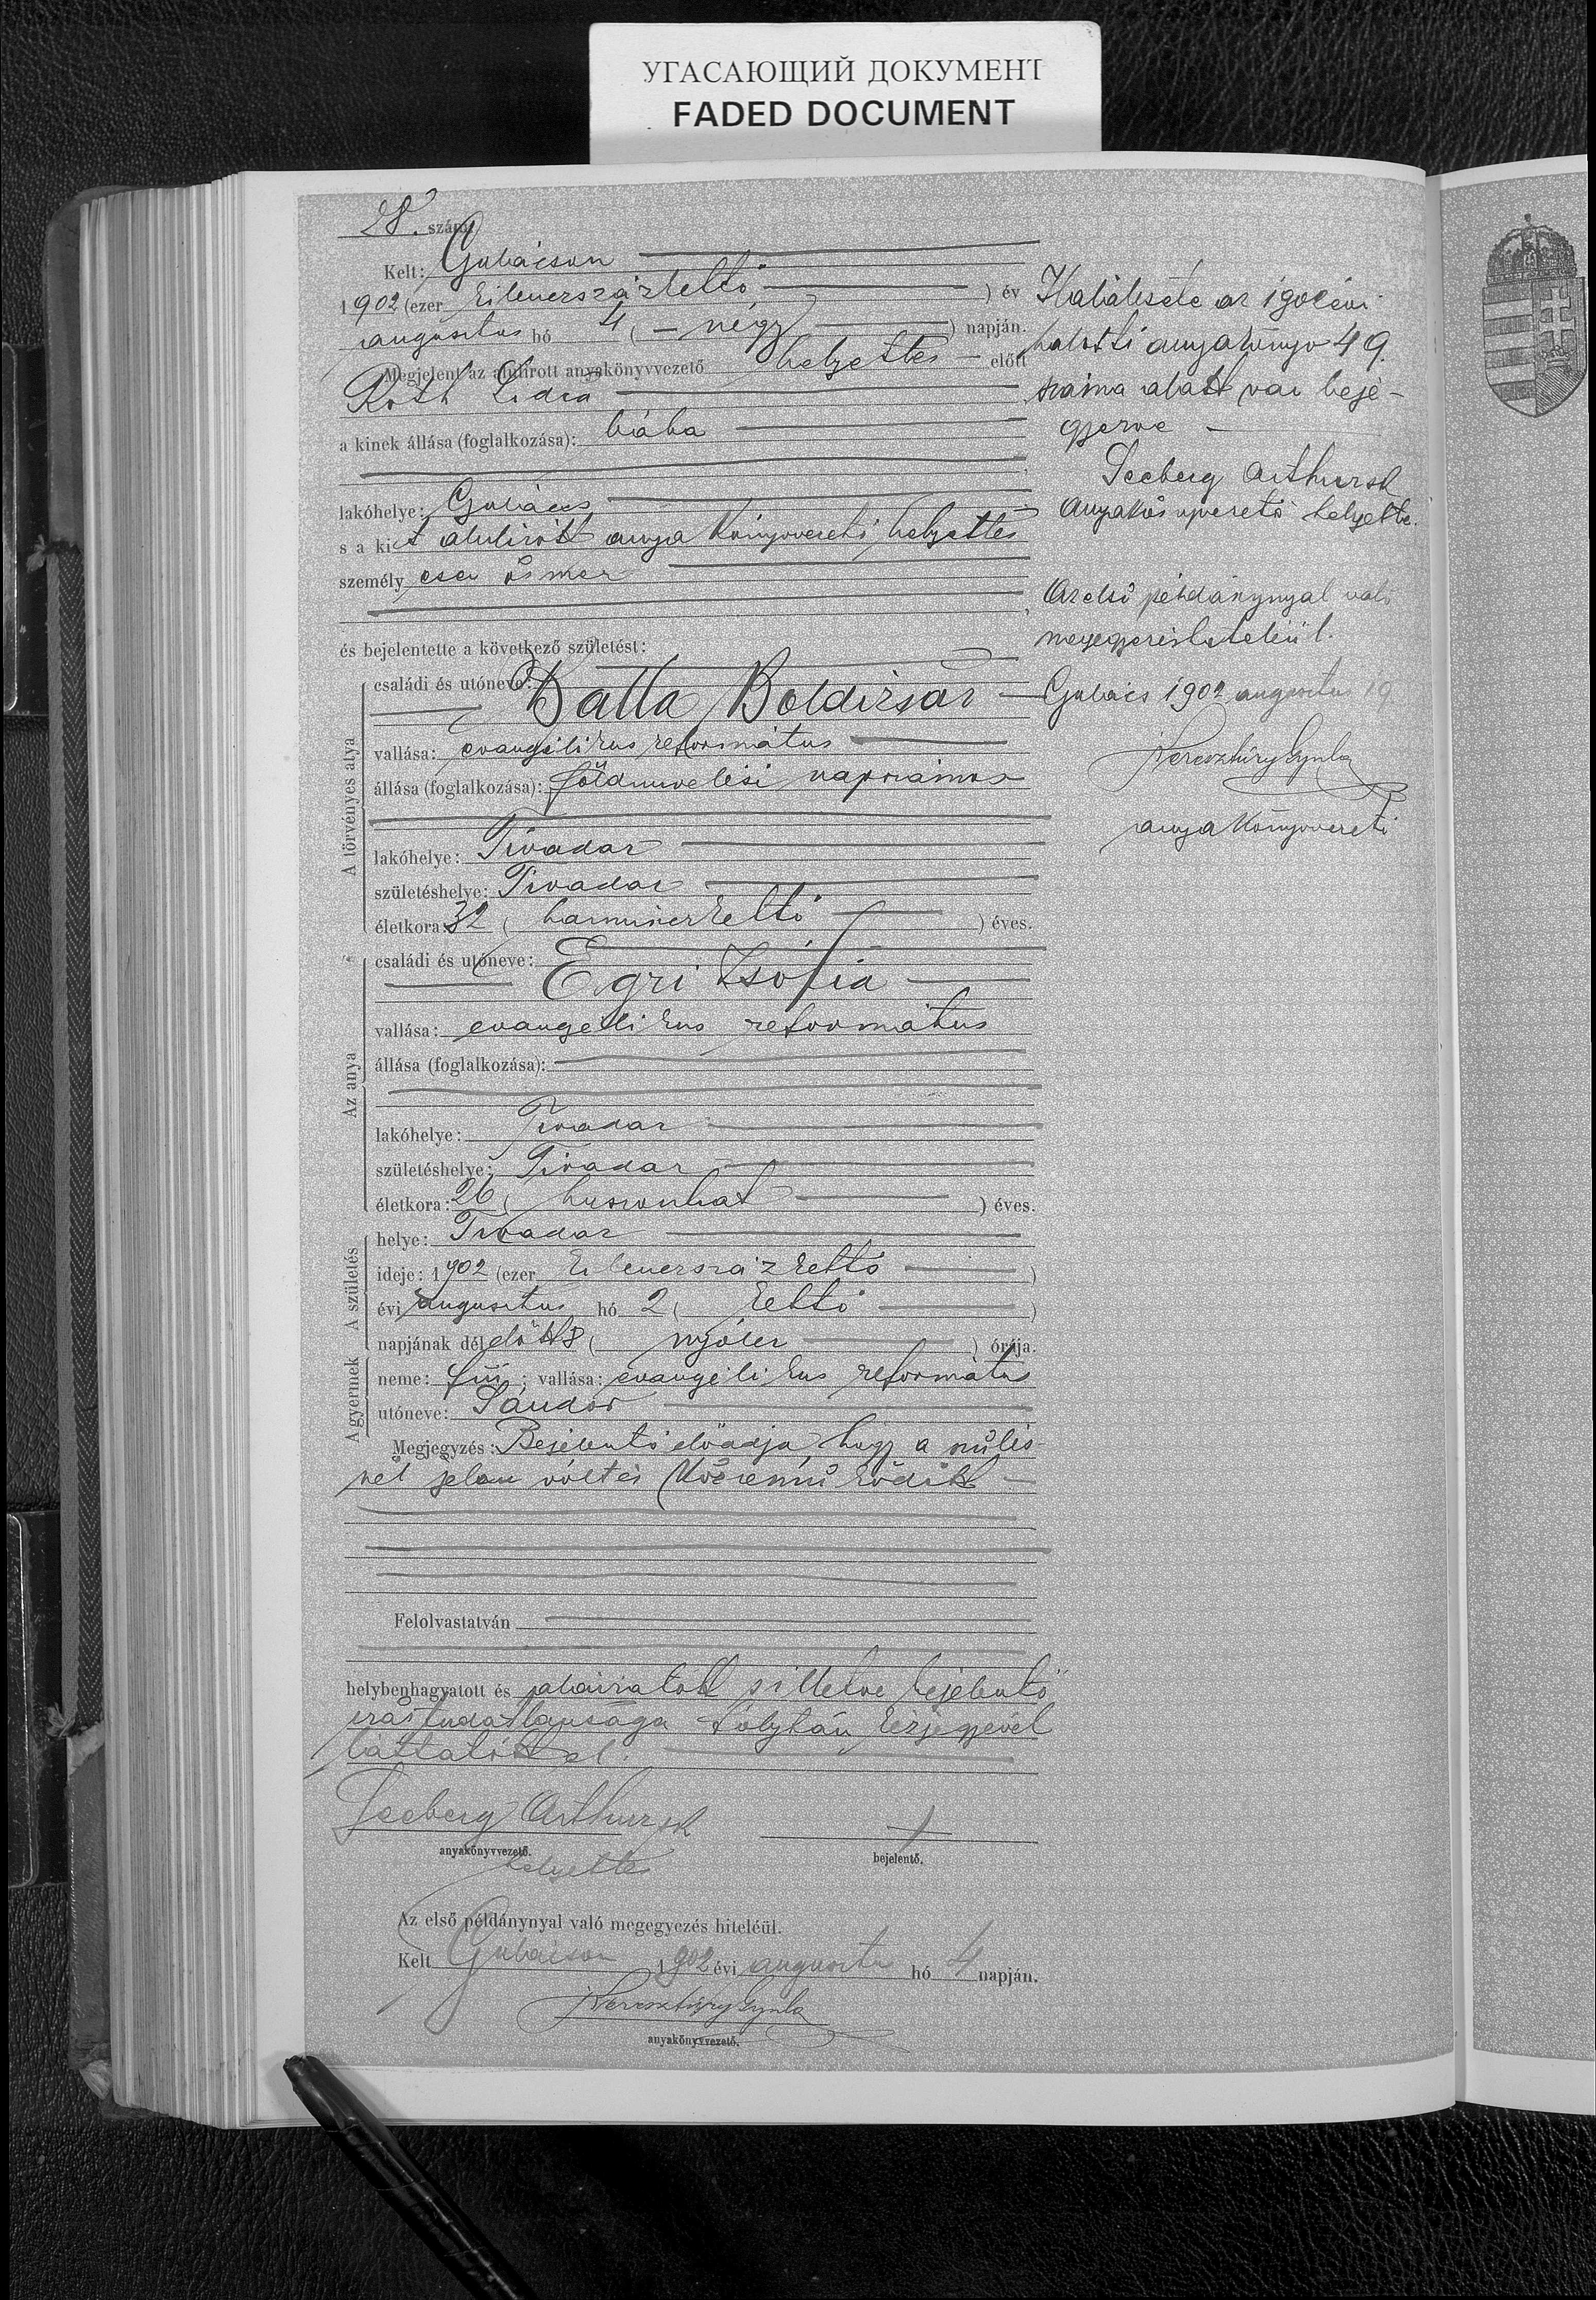 УГАСАЮЩИЙ ДОКУМЕНТ
FADED DOCUMENT
28. szám
Kelt: Gulácson
1902 (ezer kilenczszázkettő ) év
augusztus hó 4 ( – négy ) napján.
Megjelent az alulirott anyakönyvvezető helyettes – előtt
Róth Lidia
a kinek állása (foglalkozása): bába
lakóhelye: Gulács
s a kit alulirott anyakönyvvezető helyettes
személyesen ösmer
és bejelentette a következő születést:
A törvényes atya
családi és utóneve:
Batta Boldizsár
vallása: evangélikus református
állása (foglalkozása): földmüvelési napszámos
lakóhelye: Tivadar
születéshelye: Tivadar
életkora: 32 ( harminczkettő ) éves.
Az anya
családi és utóneve:
Egri Zsófia
vallása: evangélikus református
állása (foglalkozása):
lakóhelye: Tivadar
születéshelye: Tivadar
életkora: 26 ( huszonhat ) éves.
A születés
helye: Tivadar
ideje: 1902 (ezer kilenczszázkettő )
évi augusztus hó 2 ( kettő )
napjának délelőtt 8 ( nyolcz ) órája.
A gyermek
neme: fiú; vallása: evangélikus református
utóneve: Sándor
Megjegyzés: Bejelentő előadja hogy a szülés-
nél jelen volt és közremüködött
Felolvastatván
helybenhagyatott és aláiratott illetve bejelentő
irástudatlansága folytán kézjegyével
láttatott el.
Seeberg Arthur sk
anyakönyvvezető.
helyettes
+
bejelentő.
Az első példánynyal való megegyezés hiteléül.
Kelt Gulácson 1902 évi augusztus hó 4 napján.
Keresztúry Gyula
anyakönyvvezető.
Halálesete az 1902 évi
halotti anyakönyv 49.
száma alatt van bejе-
gyezve
Seeberg Arthur sk
anyakönyvvezető helyettes.
Az első példánynyal való
megegyezés hiteléül.
Gulács 1902 augusztus 19
Keresztúry Gyula
anyakönyvvezető